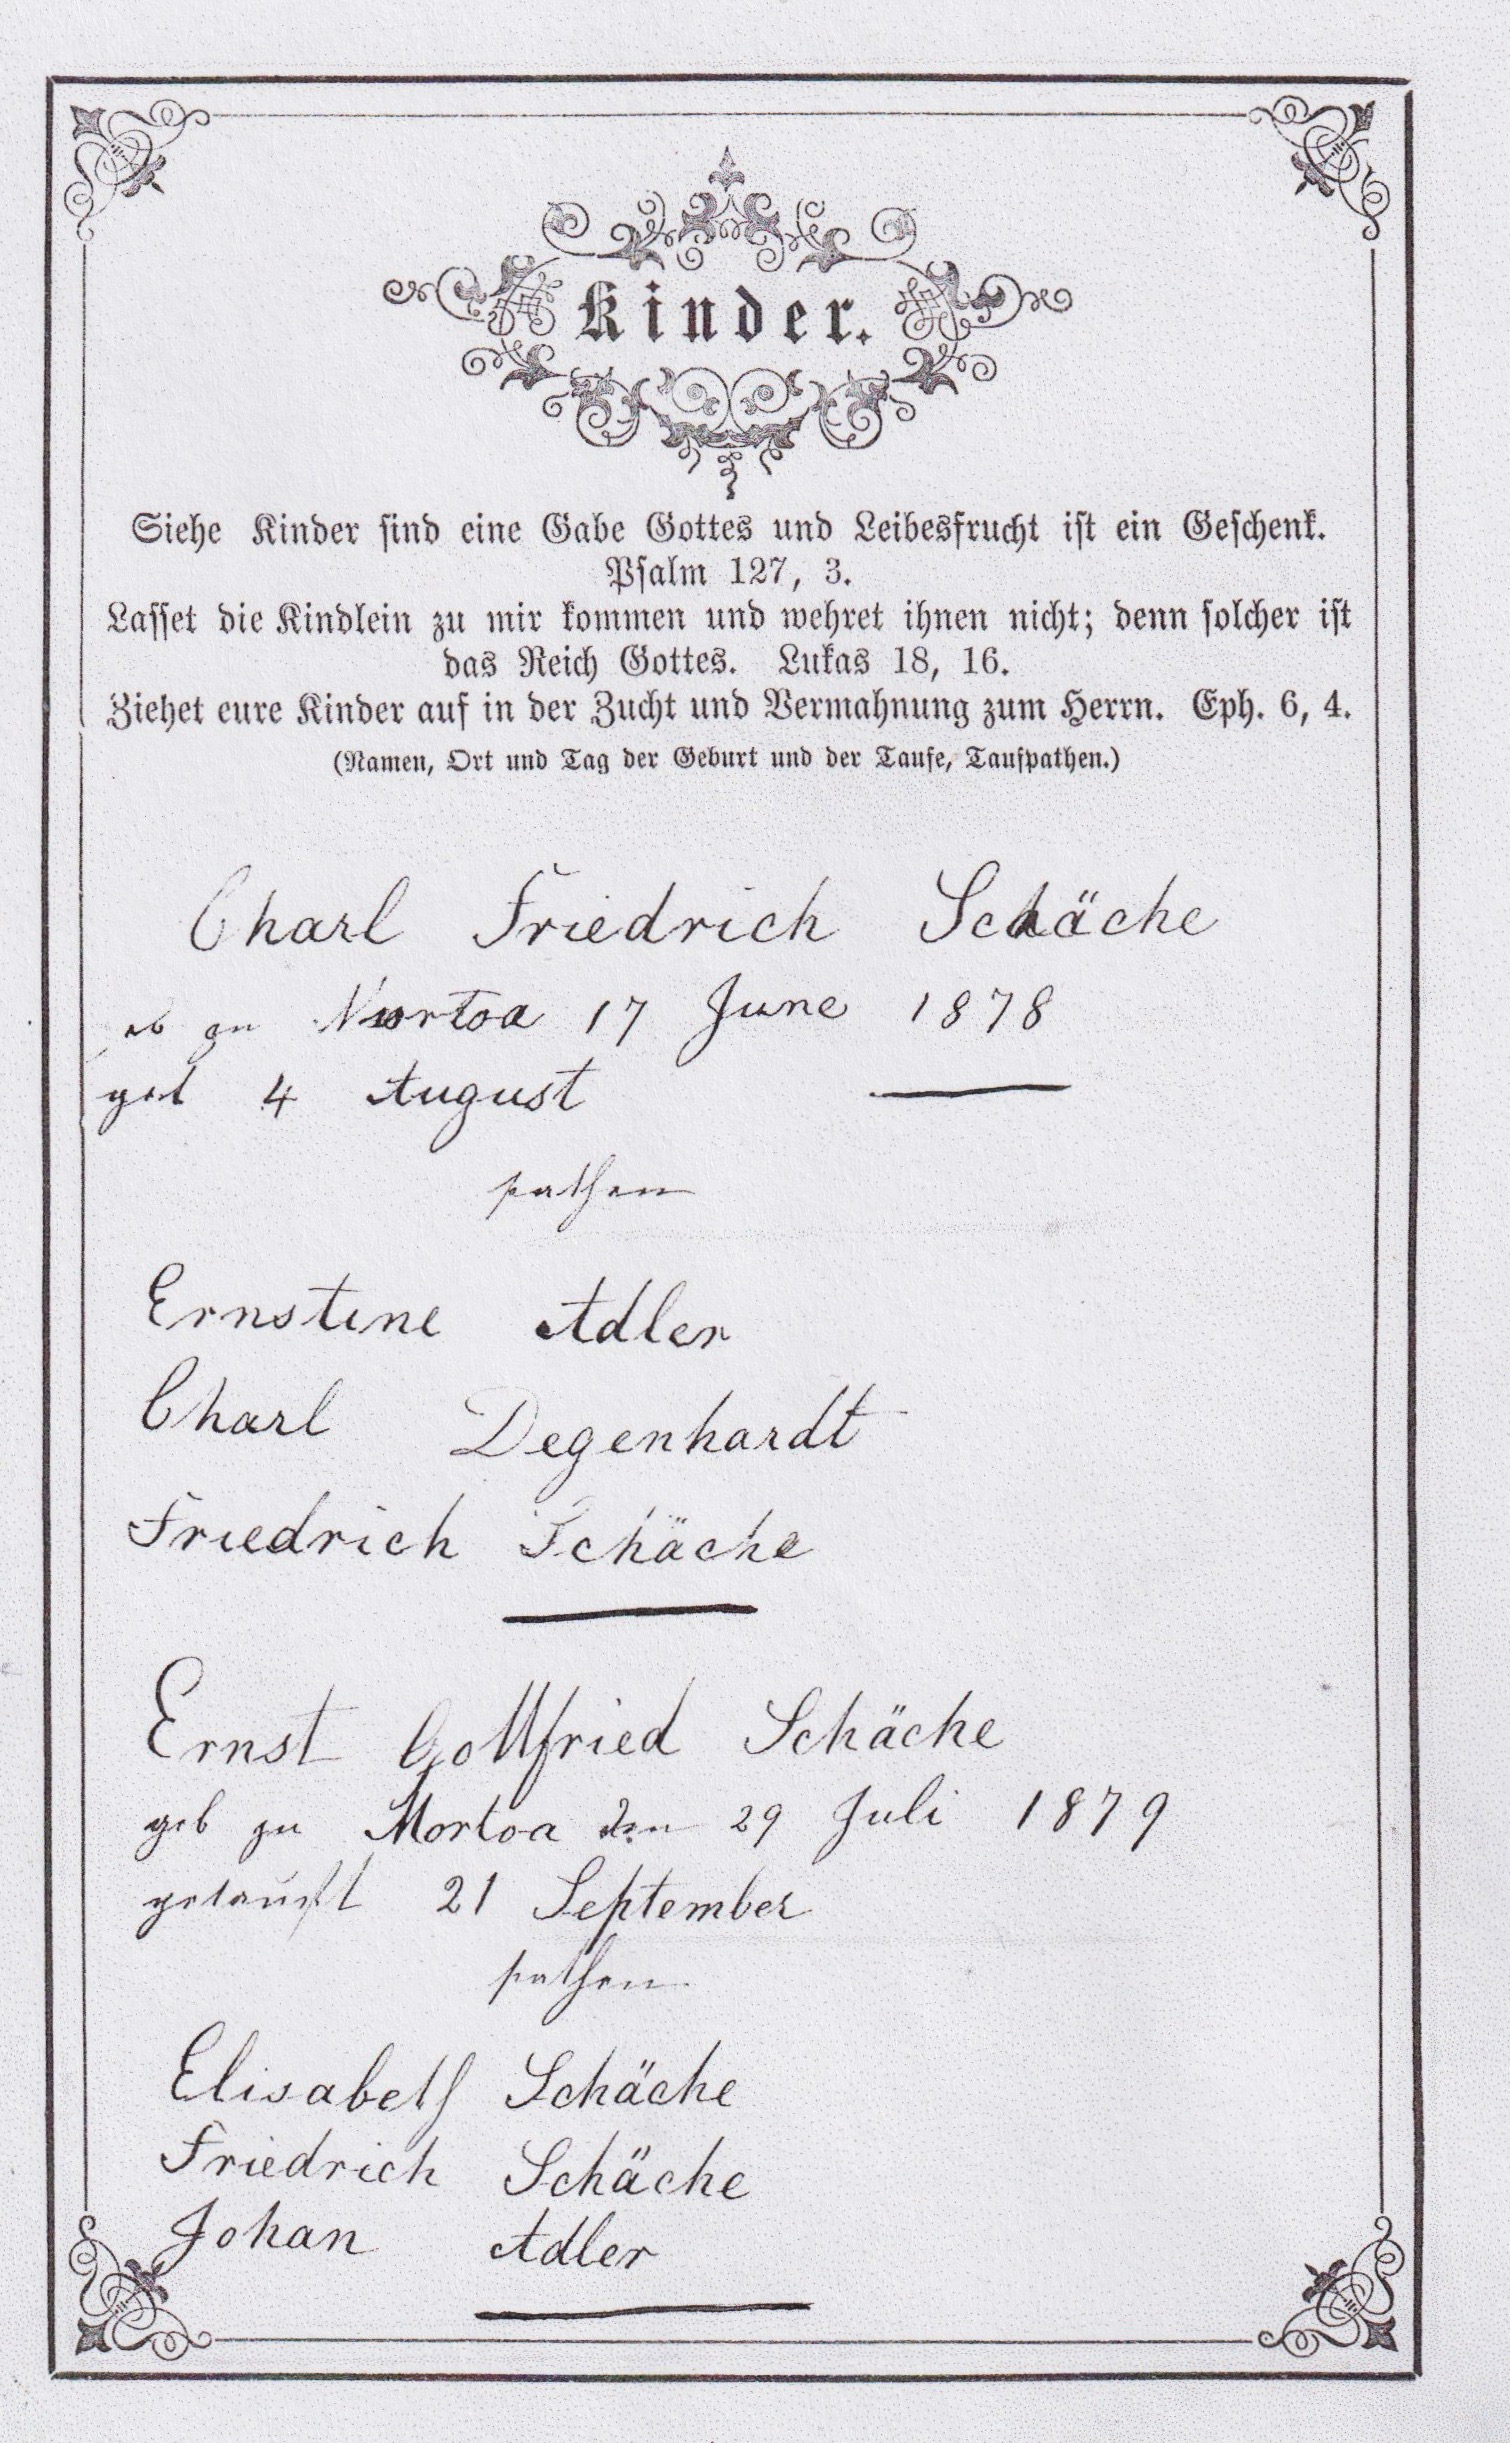 Kinder.
Siehe Kinder sind eine Gabe Gottes und Leibesfrucht ist ein Geschenk.
Psalm 127, 3.
Lasset die Kindlein zu mir kommen und wehret ihnen nicht; denn solcher ist
das Reich Gottes. Lukas 18, 16.
Ziehet eure Kinder auf in der Zucht und Vermahnung zum Herrn. Eph. 6, 4.
(Namen, Ort und Tag der Geburt und der Taufe, Taufpathen.)
Charl Friedrich Schäche
zu 17 June 1878
get 4 August
pathen
Ernstine Adler
Charl Degenhardt
Friedrich Schäche
Ernst Gottfried Schäche
geb zu Mortoa den 29 Juli 1879
getauft 21 September
pathen
Elisabeth Schäche
Friedrich Schäche
Johan Adler